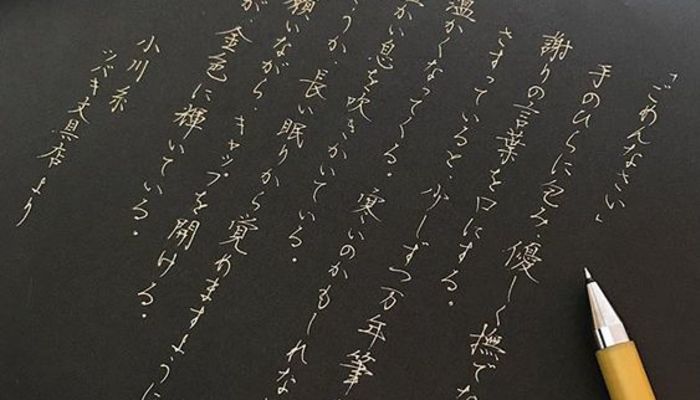 「ごめんなさい」
手のひらに包み、優しく撫でな
謝りの言葉を口にする。
さすっていると、少しずつ万年筆
温かくなってくる。寒いのかもしれな
かい息を吹きかけている。
うか、長い眠りから覚めますように
願いながら、キャップを開ける。
が、金色に輝いている。
小川 糸
ツバキ文具店より